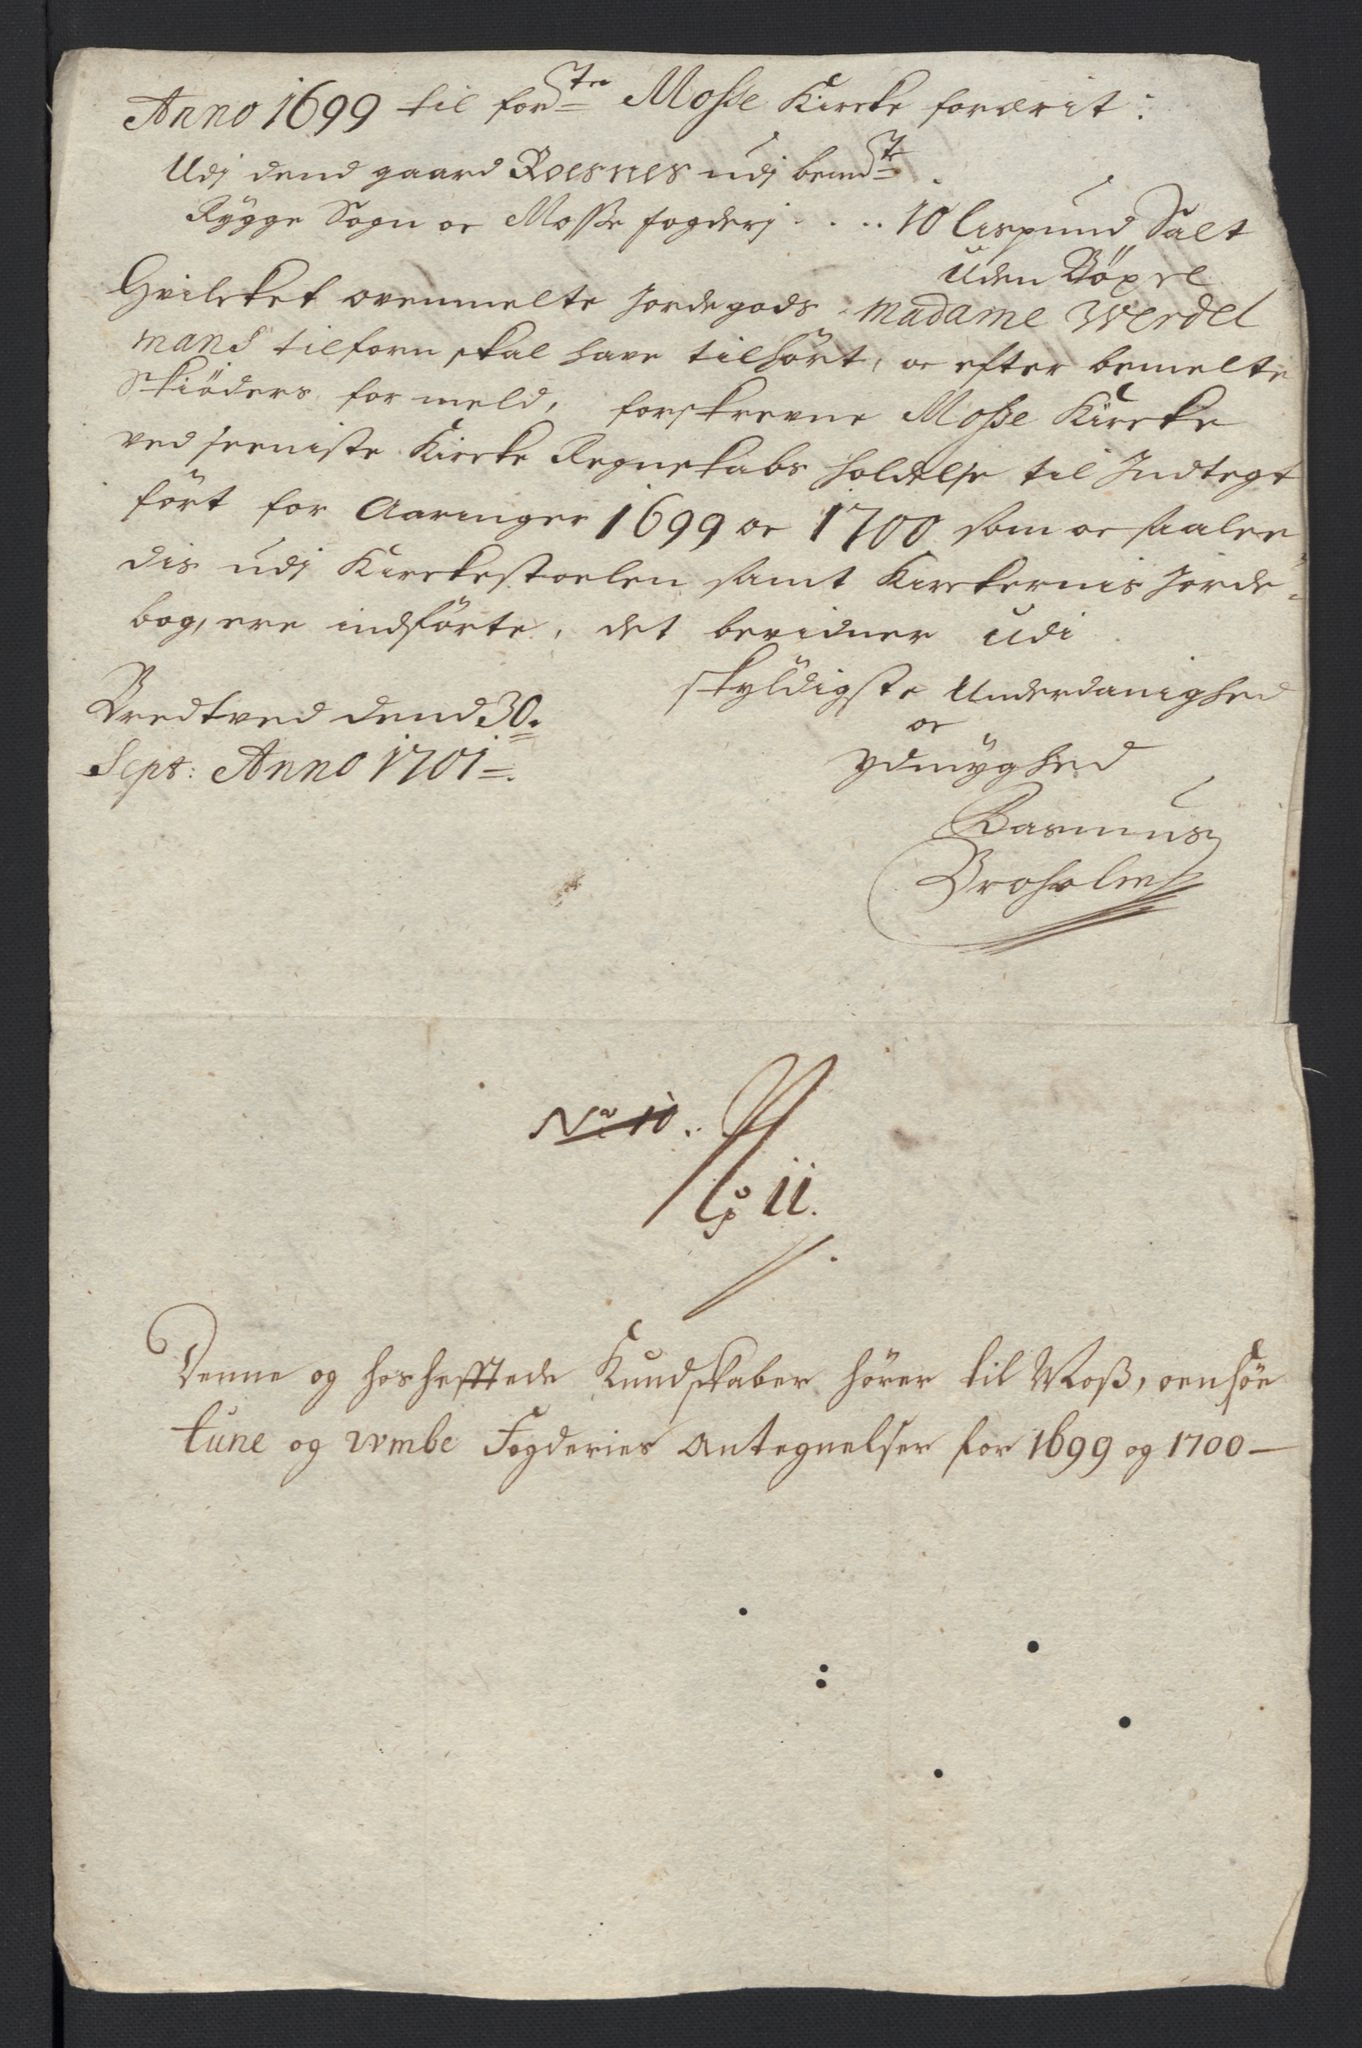 Anno 1699 til forste Mosse Kircke foræret:
Udj dend gaard Roesnes udj bemdte
Rygge Sogn oc Mosse fogderj . . . . 10 Lispund Salt
Uden Böxel
Hvilcket ovenmelte Jordegods Madame Werdel
mans tilforn skal have tilhört, oc efter bemelte
Skiöders formeld, forskrevne Mosse Kircke
ved seeniste Kircke Regnskabs holdelse til Indtegt
fört for Aaringer 1699 oc 1700 som oc saale
dis udj Kirckestoelen samt Kirckernis Jorde-
bog, ere indförte, det bevidner udi
skyldigste Underdanighed
oc
ydmyghed
Bredtved dend 30.
Sept: Anno 1701.
Rasmus
Broholm
No 10.
No 11.
Denne og hoshefftede Kundskaber hörer til Moß, oensöe
tune og wmbe Fogderies Antegnelser for 1699 og 1700